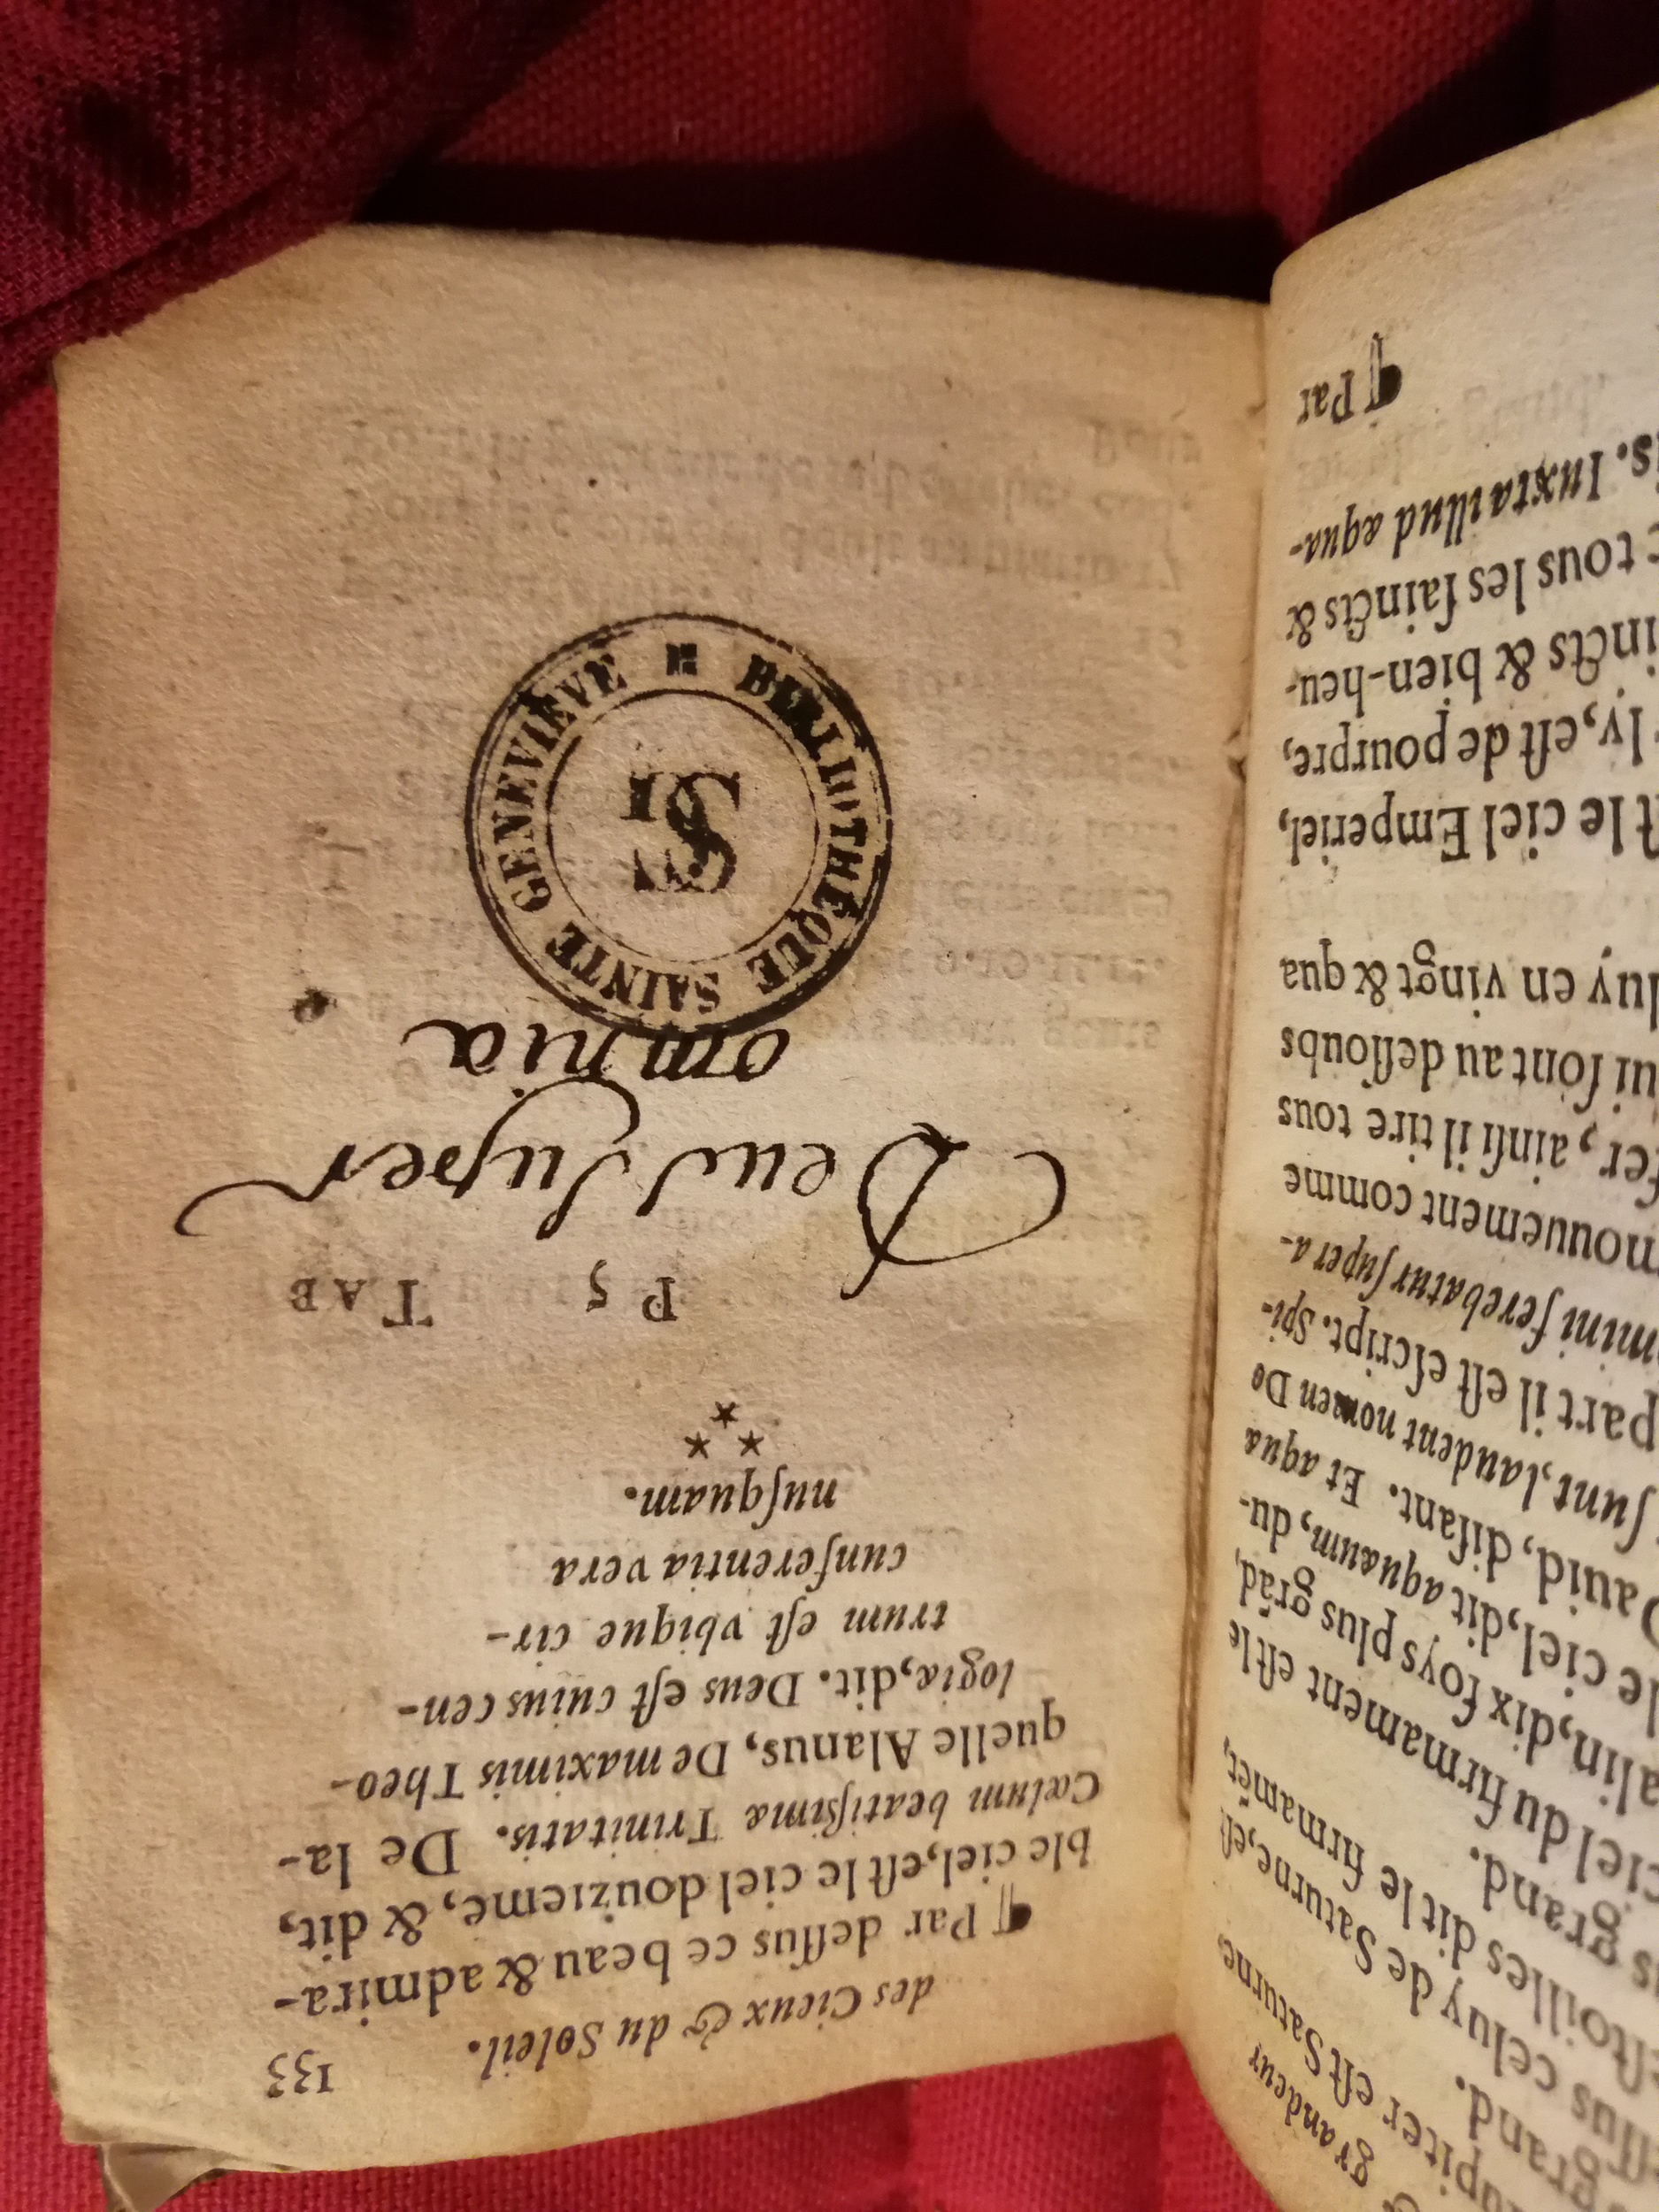 grandeur
upiter eſt Saturne
grand.
ſſus celuy de Saturne, eſt
eſtoilles dit le firmamēt,
us grand.
ciel du firmament eſt le
alin, dix foys plus grād,
le ciel, dit aquaum, du-
Dauid, diſant. Et aqua
ſunt, laudent nomen Do
part il eſt eſcript. Spi-
mini ferebatur ſuper a-
mouuement comme
fer, ainſi il tire tous
ui ſont au deſſoubs
luy en vingt & qua
ſt le ciel Emperiel,
ly, eſt de pourpre,
incts & bien-heu-
t tous les ſaincts &
is. Iuxta illud aqua-
¶ Par
des Cieux & du Soleil. 133
¶ Par deſſus ce beau & admira-
ble ciel, eſt le ciel douzieme, & dit,
Cœlum beatiſsimæ Trinitatis. De la-
quelle Alanus, De maximis Theo-
logiæ, dit. Deus eſt cuius cen-
trum eſt vbique cir-
cunferentia vera
nuſquam.
P 5 TAB
Deus super
omnia
BIBLIOTHÈQUE SAINTE GENEVIÈVE